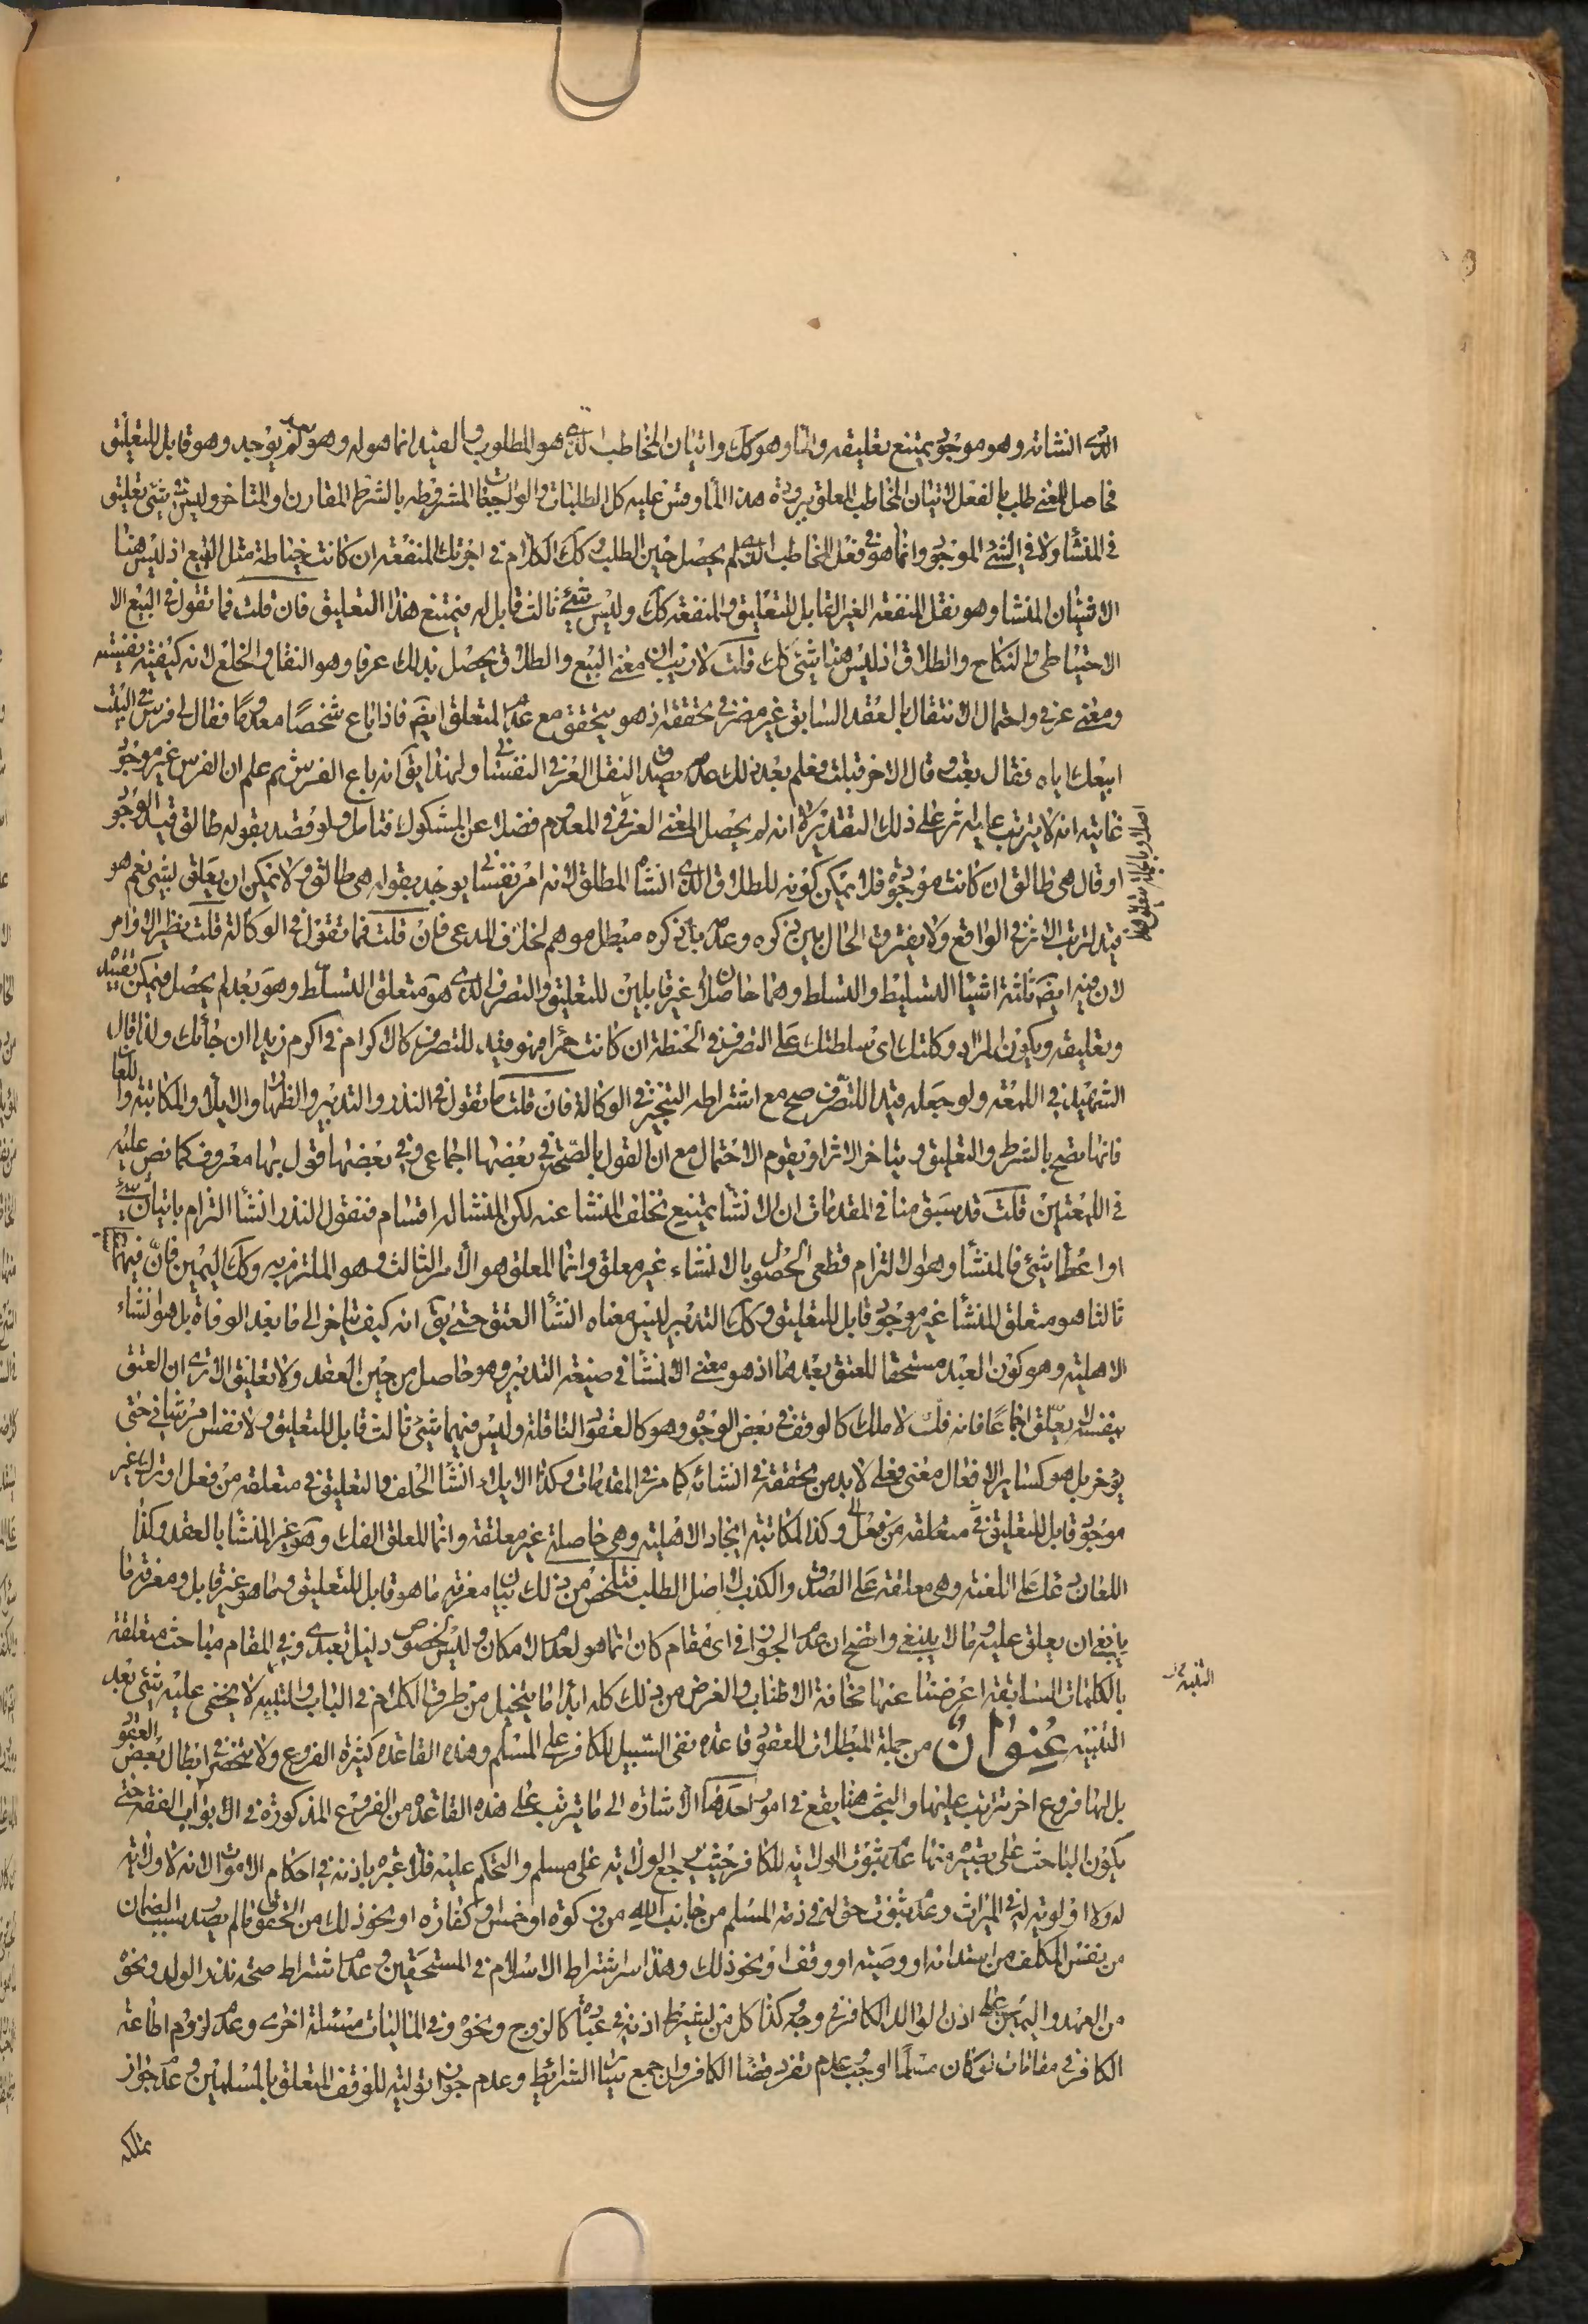 الذي انشائه وهو موجود يمتنع تعليقه واما وهو كك واتيان المخاطب الذي هو المطلوب والقيد انما هو له وهو بعد لم يوجد وهو قابل للتعليق
فحاصل المعنى طلب بالفعل لاتيان المخاطب المعلق هذا المأ وقس عليه كل الطلبات والواجبات المشروطه بالشرط المقارن او المتاخر وليس في شئ تعليق
في المنشأ ولا في الشئ الموجود وانما هو في فعل المخاطب الذي لم يحصل حين الطلب وكك الكلام في اجرتك المنفعه ان كانت خياطة مثل البيع اذ ليس هنا
الا شيئان المنشا وهو نقل المنفعه الغير القابل للتعليق والمنفعه كك وليس شئ ثالث قابل له فيمتنع هذا التعليق فان قلت فما تقول في البيع الا
الاحتياطى والنكاح والطلاق اذ ليس هنا شئ كك قلت لا ريب ان معنى البيع والطلاق يحصل بذلك عرفا وهو النقل والخلع لانه كيفيه نفسيه
ومعنى عرفي واحتمال الانتقال بالعقد السابق غير مضر في تحققه اذ هو يتحقق مع عدم المتعلق ايضا فاذا باع شخصا معدوما فقال لى فرس في البيت
ابيعك اياه فقال بعت وقال الاخر قبلت فعلم بعد ذلك عدمه يصدق النقل العرفي النفساني ولهذا يق انه باع الفرس ثم علم ان الفرس غير موجود
غايته انه لا يترتب عليه اثر على ذلك التقدير لا انه لم يحصل المعنى العرفي في المعدوم فضلا عن المشكوك فتامل ولو قصد بقوله طالق قيد الوجود
او قال هى طالق ان كانت موجوده فلا يمكن كونه للطلاق الذي انشأه المطلق لانه امر نفساني يوجد بقوله هى طالق ولا يمكن ان يعلق بشئ نعم هو
قيد لترتب الاثر في الواقع ولا يفترق الحال بين ذكره وعدمه بل ذكره مبطل موهم لخلاف المدعى فان قلت فما تقول في الوكالة قلت نظير الاوامر
لان فيه ايضا ثلثة اشياء التسليط والتسلط وهما حاصلان غير قابلين للتعليق والتصرف الذي هو متعلق التسلط وهو بعد لم يحصل فيمكن تقييده
وتعليقه ويكون المراد وكلتك اى سلطتك على التصرف في الحنطة ان كانت حمرا فهو قيد للتصرف كالاكرام في اكرم زيدا ان جائك ولذا قال
الشهيد في اللمعه ولو جعله قيدا للتصرف صح مع اشتراطه التنجيز في الوكالة فان قلت ما تقول في النذر والتدبير والظهار والايلاء والمكاتبه واللعان
فانها تصح بالشرط والتعليق ويتاخر الاثر او يقوم الاحتمال مع ان القول بالصحة في بعضها اجماعى وفي بعضها قول بها معروف كما نص عليه
في اللمعتين قلت قد سبق منا في المقدمات ان الانشاء يمتنع تخلف المنشا عنه لكن المنشا له اقسام فنقول النذر انشأ التزام باتيان شئ
او اعطا شئ فالمنشأ وهو الالتزام قطعى الحصول بالانشاء غير معلق وانما المعلق هو الامر الثالث وهو الملتزم به وكك اليمين فان فيهما
ثالثا هو متعلق المنشأ غير موجود قابل للتعليق وكك التدبير ليس معناه انشأ العتق حتى يق انه كيف يتاخر الى ما بعد الوفاة بل هو انشاء
الاهليه وهو كون العبد مستحقا للعتق بعدها اذ هو معنى الانشا في صيغه التدبير وهو حاصل من حين العقد ولا تعليق الا ترى ان العتق
بنفسه لا يعلق اجماعا فانه فك لا ملك كالوقف في بعض الوجوه وهو كالعقود الناقلة وليس فيهما شئ ثالث قابل للتعليق ولا نفس امر شانى حتى
يؤخر بل هو كساير الافعال معنى فعلى لا بد من تحققه في انشائه كما مر في المقدمات وكذا الايلاء انشأ الحلف والتعليق في متعلقه من فعل او ترك غير
موجود قابل للتعليق في متعلقه من فعل وكذا المكاتبه ايجاد الاهليه وهى حاصلة غير معلقه وانما المعلق الفك وهو غير المنشأ بالعقد وكذا
اللعان على اللعنه وهى معلقه على الصدق والكذب لا اصل الطلب فتلخص من ذلك بيان معرفه ما هو قابل للتعليق وما هو غير قابل ومعرفه ما
ينبغي ان يعلق عليه وما لا ينبغى واتضح ان عدم الجواز في اى مقام كان انما هو لعدم الامكان وليس لخصوص دليل تعبدى وفي المقام مباحث متعلقه
بالكلمات السابقه اعرضنا عنها مخافه الاطناب والغرض من ذلك كله ابداء ما يتخيل من طرق الكلام في الباب واللبيب لا يخفى عليه شئ بعد
التنبيه عنوان من جملة المبطلات للعقود قاعده نفى السبيل للكافر على المسلم وهذه القاعده كثيرة الفروع ولا تنحصر في ابطال بعض العقود
بل لها فروع اخر تترتب عليها والبحث هنا يقع في امور احدها الاشاره الى ما يترتب على هذه القاعده من الفروع المذكورة في الابواب الفقه حتى
يكون الباحث على بصيره منها عدم ثبوت الولايه للكافر حيث يرجع الولاية على مسلم والتحكم عليه فلا عبره باذنه في احكام الاموات لانه لا ولاية
له ولا اولويه له في الميراث وعدم ثبوت حق له في ذمه المسلم من جانب الله من زكوة او خمس او كفاره او نحو ذلك من الحقوق ما لم يصدر سبب الضمان
من نفس المكلف من استدانه او وصيه او وقف او نحو ذلك وهذا سر اشتراط الاسلام في المستحقين وعدم اشتراط صحه نذر الولد ونحوه
من العهد واليمين على اذن الوالد الكافر في وجه وكذا كل من يشترط اذنه في عباده كالزوج ونحوه وفي الماليات مسئلة اخرى وعدم لزوم اطاعه
الكافر في مقامات لو كان مسلما لوجب وعدم نفوذ قضاء الكافر وان جمع سائر الشرائط وعدم جواز توليته للوقف المتعلق بالمسلمين وعدم جواز
تملكه